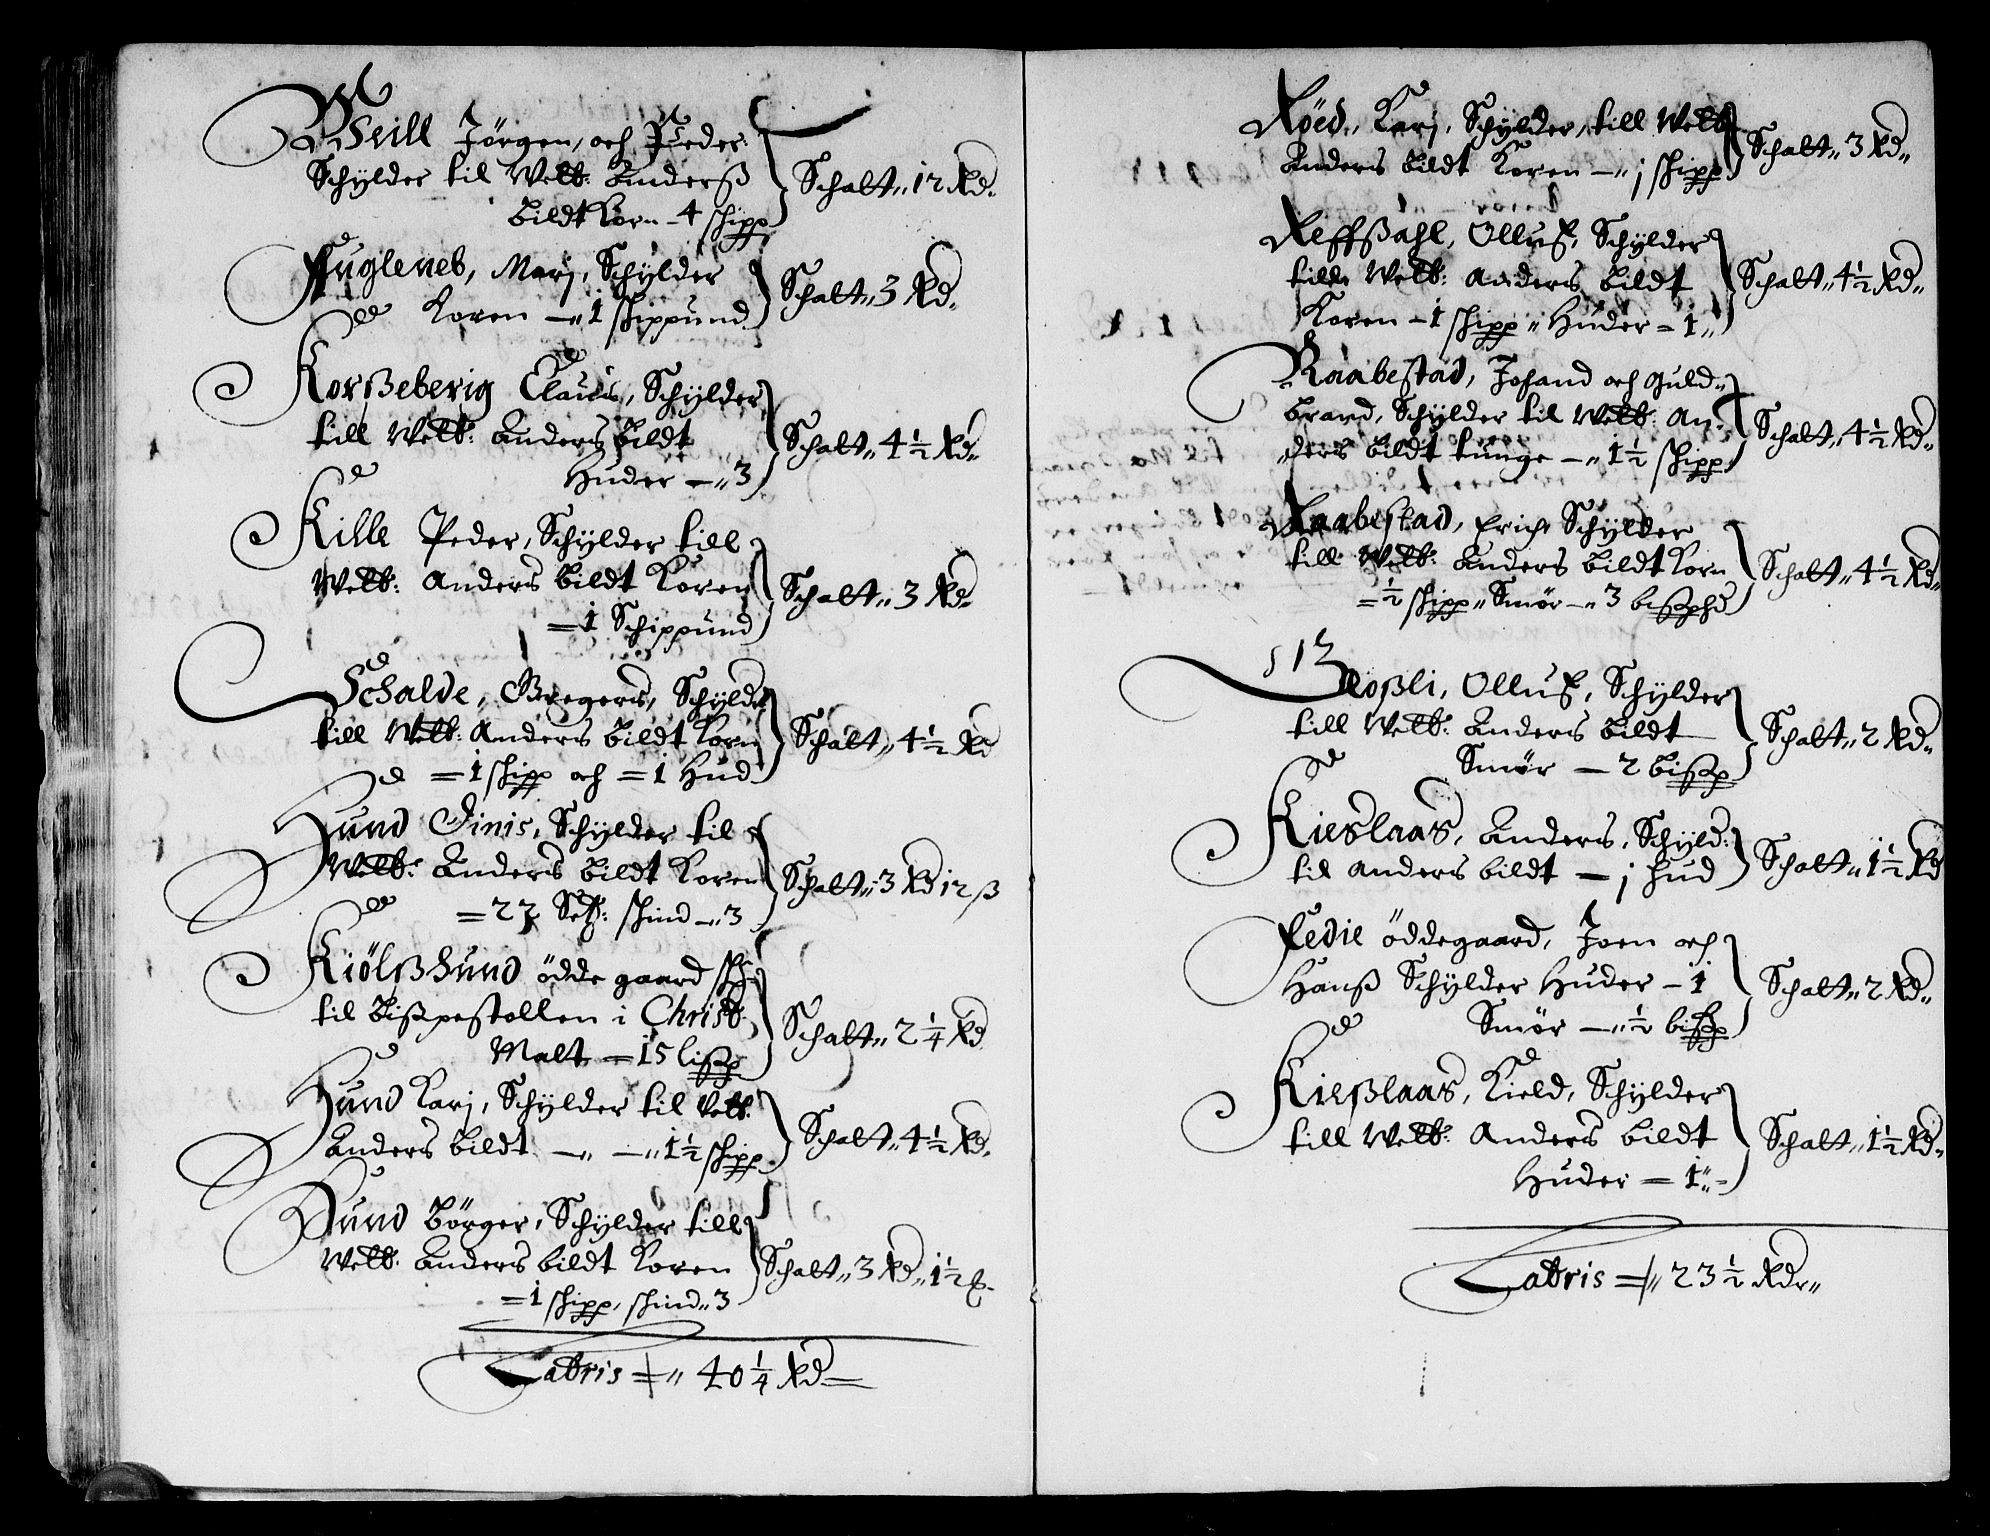 Seill Jörgen, och Peder
Schylder til Welb: Anderß
bildt Korn - 4 shipp
Schatt „ 12 Rd.
Fugleneb, Marj, Schylder
Koren — „ 1 shippund
Schatt „ 3 Rd.
Korßeberig Clauis, Schylder
till Welb: Anders bildt
Huder — „ 3
Schatt „ 4 ½ Rd „
Kille Peder, Schylder till
Welb: Anders bildt Koren
= 1 Schippund
Schatt „ 3 Rd.
Schalde, Gregers, Schylder
till Welb: Anders bildt Korn
= 1 shipp och = 1 Hud.
Schatt „ 4 ½ Rd
Hund Dinis, Schylder til
Welb: Anders bildt Koren
shind — „ 3
Schatt „ 3 Rd 12 ß
Kiölßhund ödde gaard
til bißpestollen i Christ:
Malt — 15 lißp
Schatt „ 2 ¼ Rd
Hund Karj, Schylder til Velb:
Anders bildt — „ — „ 1 ½ shipp.
Schatt „ 4 ½ Rd.
Hund Börger, Schylder till
Welb: Anders bildt Koren
= 1 shipp, shind „ 3
Schatt „ 3 Rd „ 1 ½
Latris = „ 40 ¼ Rd —
Röed, Karj, Schylder, till Welb
Anders bildt Koren — „ j shipp
Schatt „ 3 Rd „
Reffßahl, Olluf, Schylder
till Welb: Anders bildt
Koren - 1 shipp „ Huder = 1 „
Schatt „ 4 ½ Rd „
Raabestad, Johand och Guld„
brand, Schylder til Welb: An„
„ders bildt tunge — „ 1 ½ shipp
Schatt „ 4 ½ Rd „
Raabestad, Erich, Schylder
till Welb: Anders bildt Korn
= ½ shipp „ Smör — „ 3 bißphd
Schatt „ 4 ½ Rd „
Bloßli, Olluf, Schylder
till Velb: Anders bildt
Smör — 2 bißp
Schatt „ 2 Rd „
Kieslaas, Anders, Schyld:
til Anders bildt — j Hud
Schatt „ 1 ½ Rd
Ledie öddegaard, Joen och
Hanß Schylder Huder - 1
Smör — „ ½ bißp
Schatt „ 2 Rd „
Kießlaas, Kield, Schylder
till Welb: Anders bildt
Huder = 1 „ -
Schatt „ 1 ½ Rd „
Latris = „ 23 ½ Rdr „